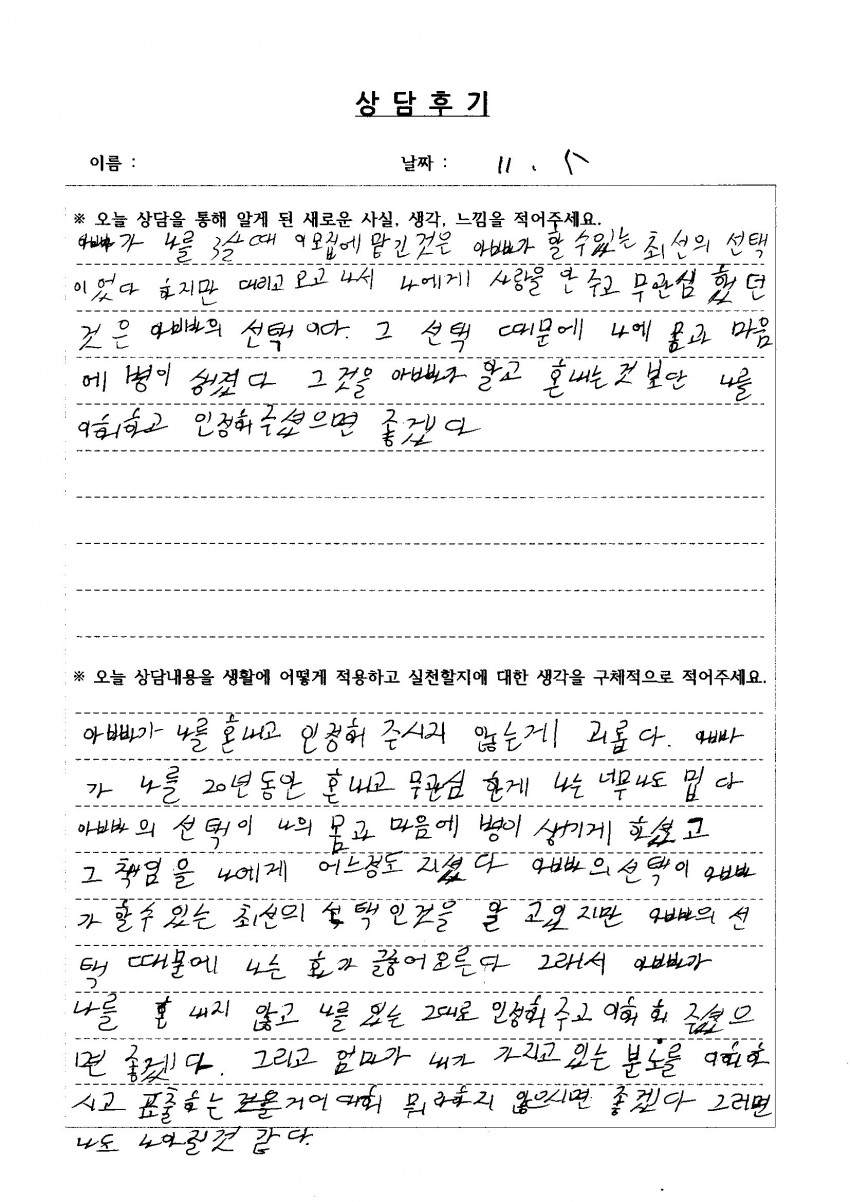 상담후기
이름 : 날짜 : 11. 5
※ 오늘 상담을 통해 알게 된 새로운 사실, 생각, 느낌을 적어주세요.
아빠가 나를 3살때 이모집에 맡긴것은 아빠가 할 수있는 최선의 선택
이었다 하지만 데리고 오고 나서 나에게 사랑을 안 주고 무관심 했던
것은 아빠의 선택이다. 그 선택 때문에 나에 몸과 마음
에 병이 생겼다 그것을 아빠가 알고 혼내는것 보단 나를
이해하고 인정해주셨으면 좋겠다
※ 오늘 상담내용을 생활에 어떻게 적용하고 실천할지에 대한 생각을 구체적으로 적어주세요.
아빠가 나를 혼내고 인정해 주시지 않는게 괴롭다. 아빠
가 나를 20년동안 혼내고 무관심 한게 나는 너무나도 밉다
아빠의 선택이 나의 몸과 마음에 병이 생기게 하셨고
그 책임을 나에게 어느정도 지셨다 아빠의 선택이 아빠
가 할수 있는 최선의 선택인것을 알고있지만 아빠의 선
택 때문에 나는 화가 끓어오른다 그래서 아빠가
나를 혼내지 않고 나를 있는 그대로 인정해주고 이해해 주셨으
면 좋겠다. 그리고 엄마가 내가 가지고 있는 분노를 이해하
시고 표출하는 뭐라하지 않으시면 좋겠다 그러면
나도 나아질것 같다.